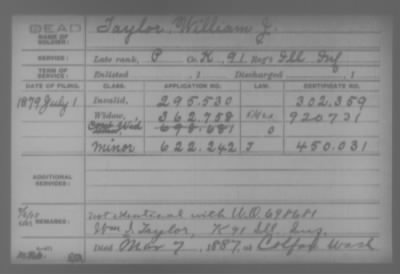 DEAD
NAME OF SOLDIER: Taylor, William J.
SERVICE: Late rank, P Co. K, 91 Reg't Ill Inf
TERM OF SERVICE: Enlisted , 1 Discharged , 1
DATE OF FILING. CLASS. APPLICATION NO. LAW. CERTIFICATE NO.
1879 July 1 Invalid, 295.530 302.359
Widow, 362.758 920731
Cont Wid 698.681 0
Minor 622.242 J 450.031
ADDITIONAL SERVICES:
REMARKS: not identical with W.O. 698681
Wm J. Taylor, K 91 Ill. Inf.
Died Mar 7, 1887, at Colfax Wash